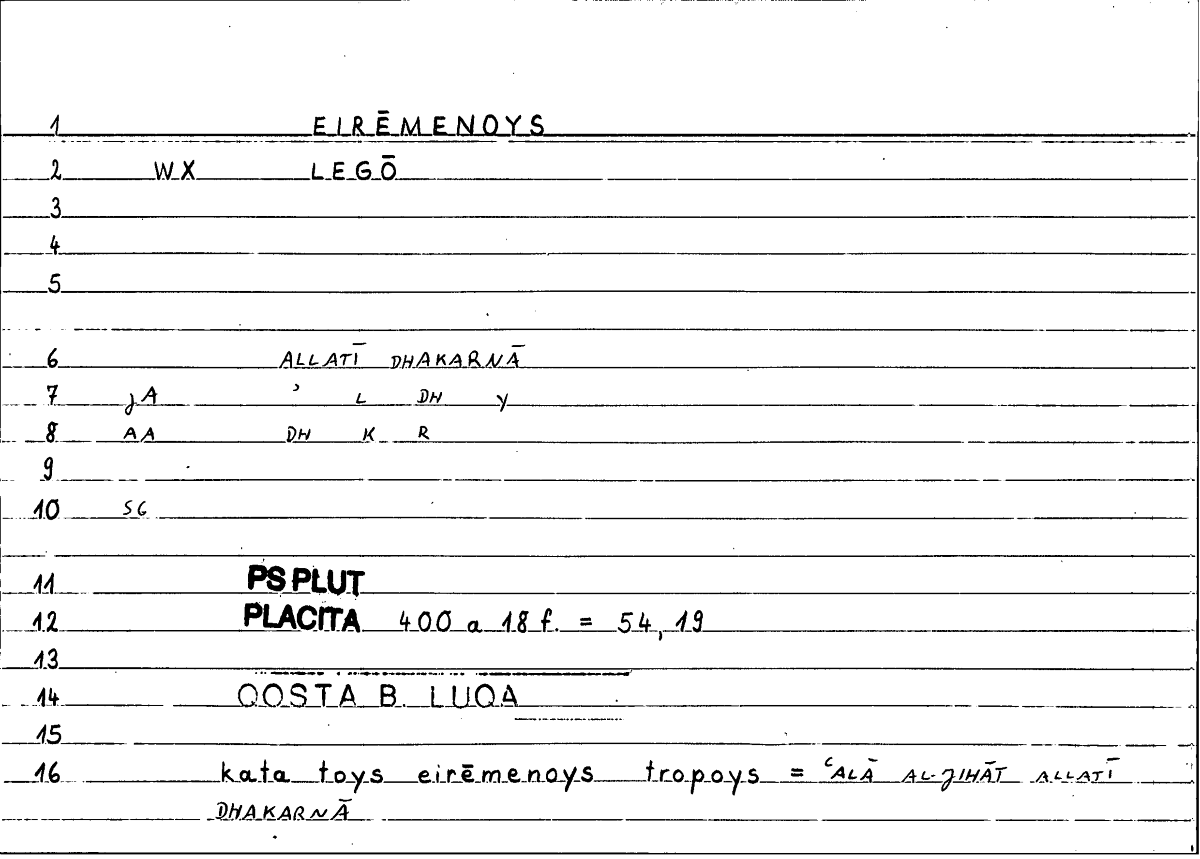 1 EIRĒMENOYS
2 WX LEGŌ
3
4
5
6 ALLATĪ DHAKARNĀ
7 JA ʾ L DH Y
8 AA DH K R
9
10 SG
11 PS PLUT
12 PLACITA 400 a 18 f. = 54,19
13
14 QOSTA B. LUQA
15
16 kata toys eirēmenoys tropoys = ʿALĀ AL-JIHĀT ALLATĪ
DHAKARNĀ